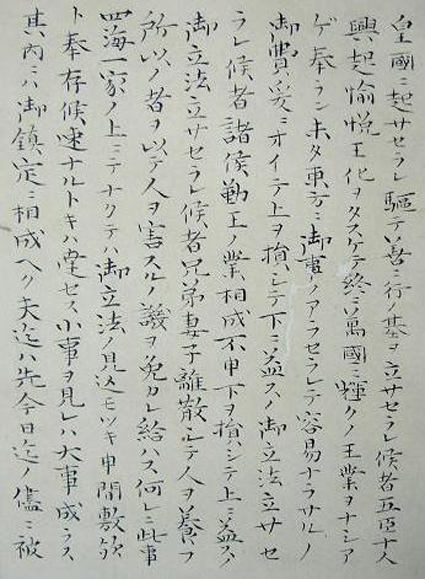 皇國ニ起サセラレ驅テ善ニ行ノ基ヲ立サセラレ候者五臣十人
興起愉悦王化ヲタスケテ終ニハ萬國ニ輝クノ王業ヲナシア
ゲ奉ラン未タ東方ニ御事ノアラセラレテ容易ナラサルノ
御費爰ニオイテ上ヲ損シテ下ニ益スノ御立法立サセ
ラレ候者諸侯勤王ノ業相成不申下ヲ損シテ上ニ益スノ
御立法立サセラレ候者兄弟妻子離散ルテ人ヲ養フ
所以ノ者ヲ以テ人ヲ害スルノ譏ヲ免カレ給ハス何レニ此事
四海一家ノ上ニテナクテハ御立法ノ見込モツキ申間敷欤
ト奉存候速ナルトキハ達セス小事ヲ見レハ大事成ラス
其内ニハ御鎮定ニ相成ヘク夫迄ハ先今日迄ノ儘ニ被